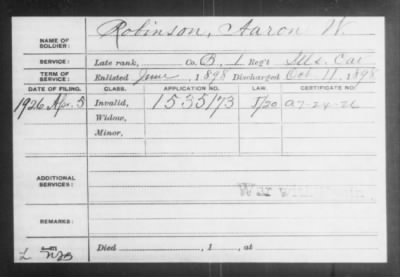 NAME OF SOLDIER: Robinson, Aaron W.
SERVICE: Late rank, Co. B, 1 Reg't Ills. Cav
TERM OF SERVICE: Enlisted June, 1898 Discharged Oct 11, 1898
DATE OF FILING. CLASS. APPLICATION NO. LAW. CERTIFICATE NO.
1926 Apr. 3 Invalid, 1535173 5/20 A7-24-26
Widow,
Minor,
ADDITIONAL SERVICES:
War
REMARKS:
Died , 1 , at